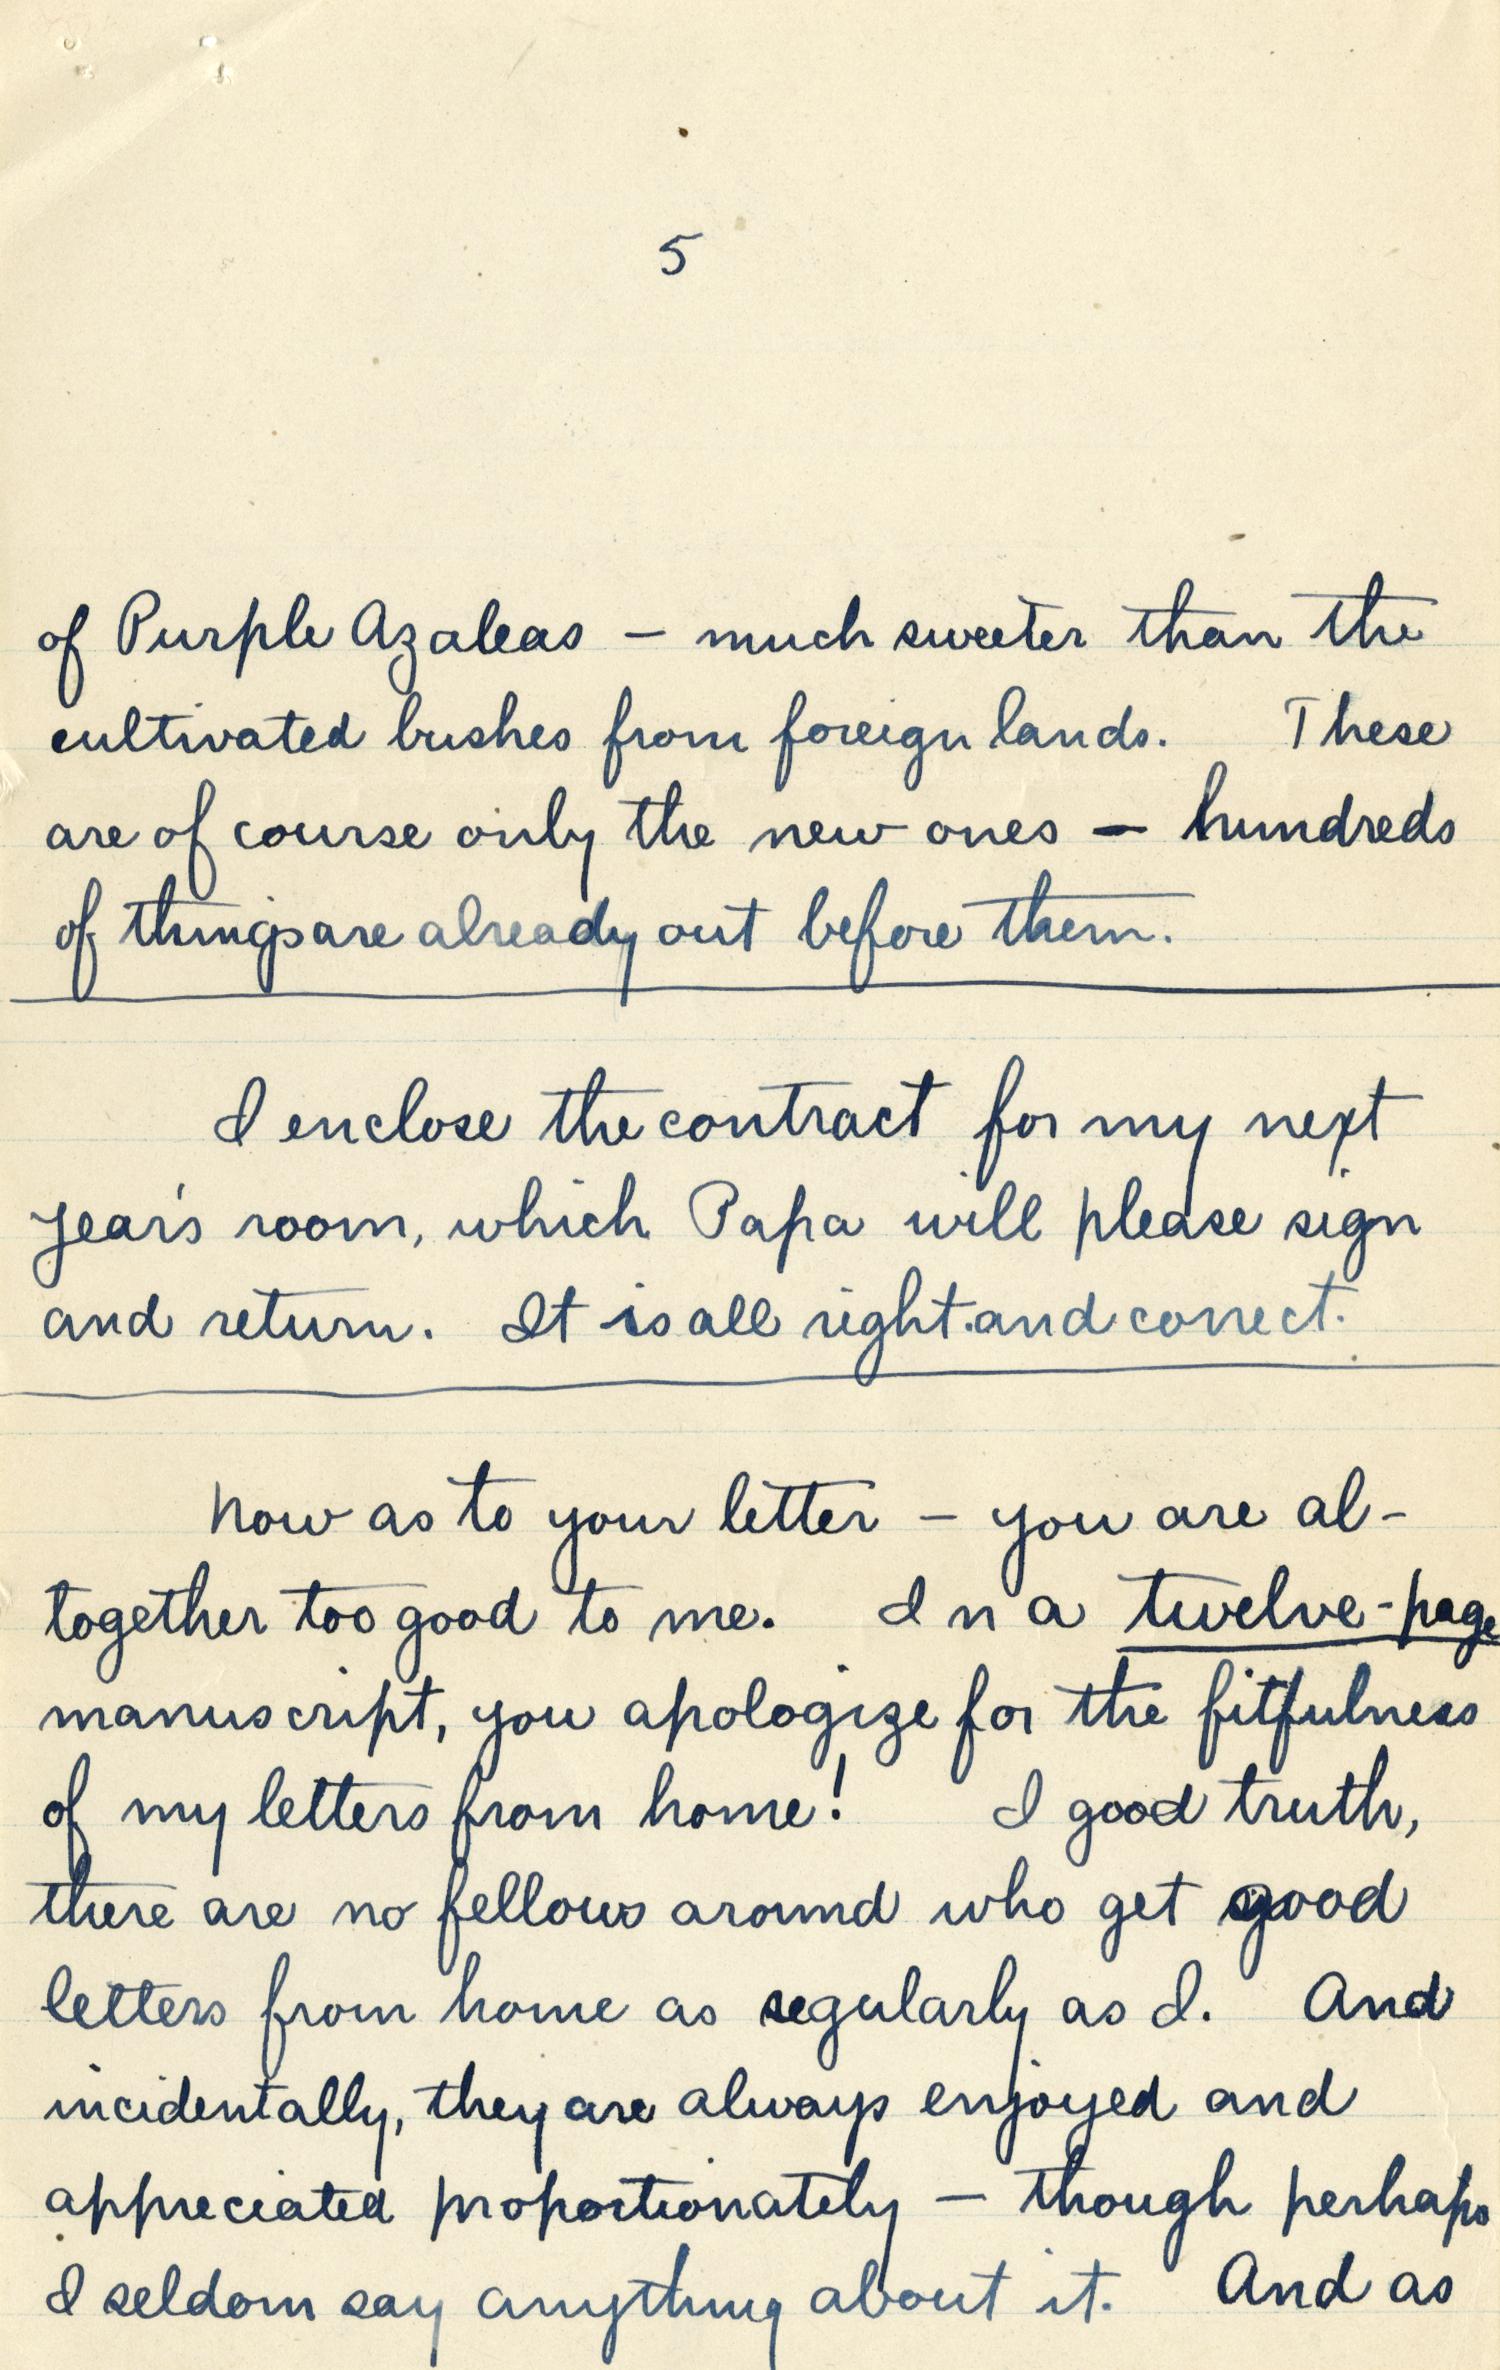 5
of Purple Azaleas — much sweeter than the
cultivated bushes from foreign lands. These
are of course only the new ones — hundreds
of things are already out before them.
I enclose the contract for my next
year's room, which Papa will please sign
and return. It is all right and correct.
Now as to your letter — you are al-
together too good to me. In a twelve-page
manuscript, you apologize for the fitfulness
of my letters from home! I good truth,
there are no fellows around who get good
letters from home as regularly as I. And
incidentally, they are always enjoyed and
appreciated proportionately — though perhaps
I seldom say anything about it. And as